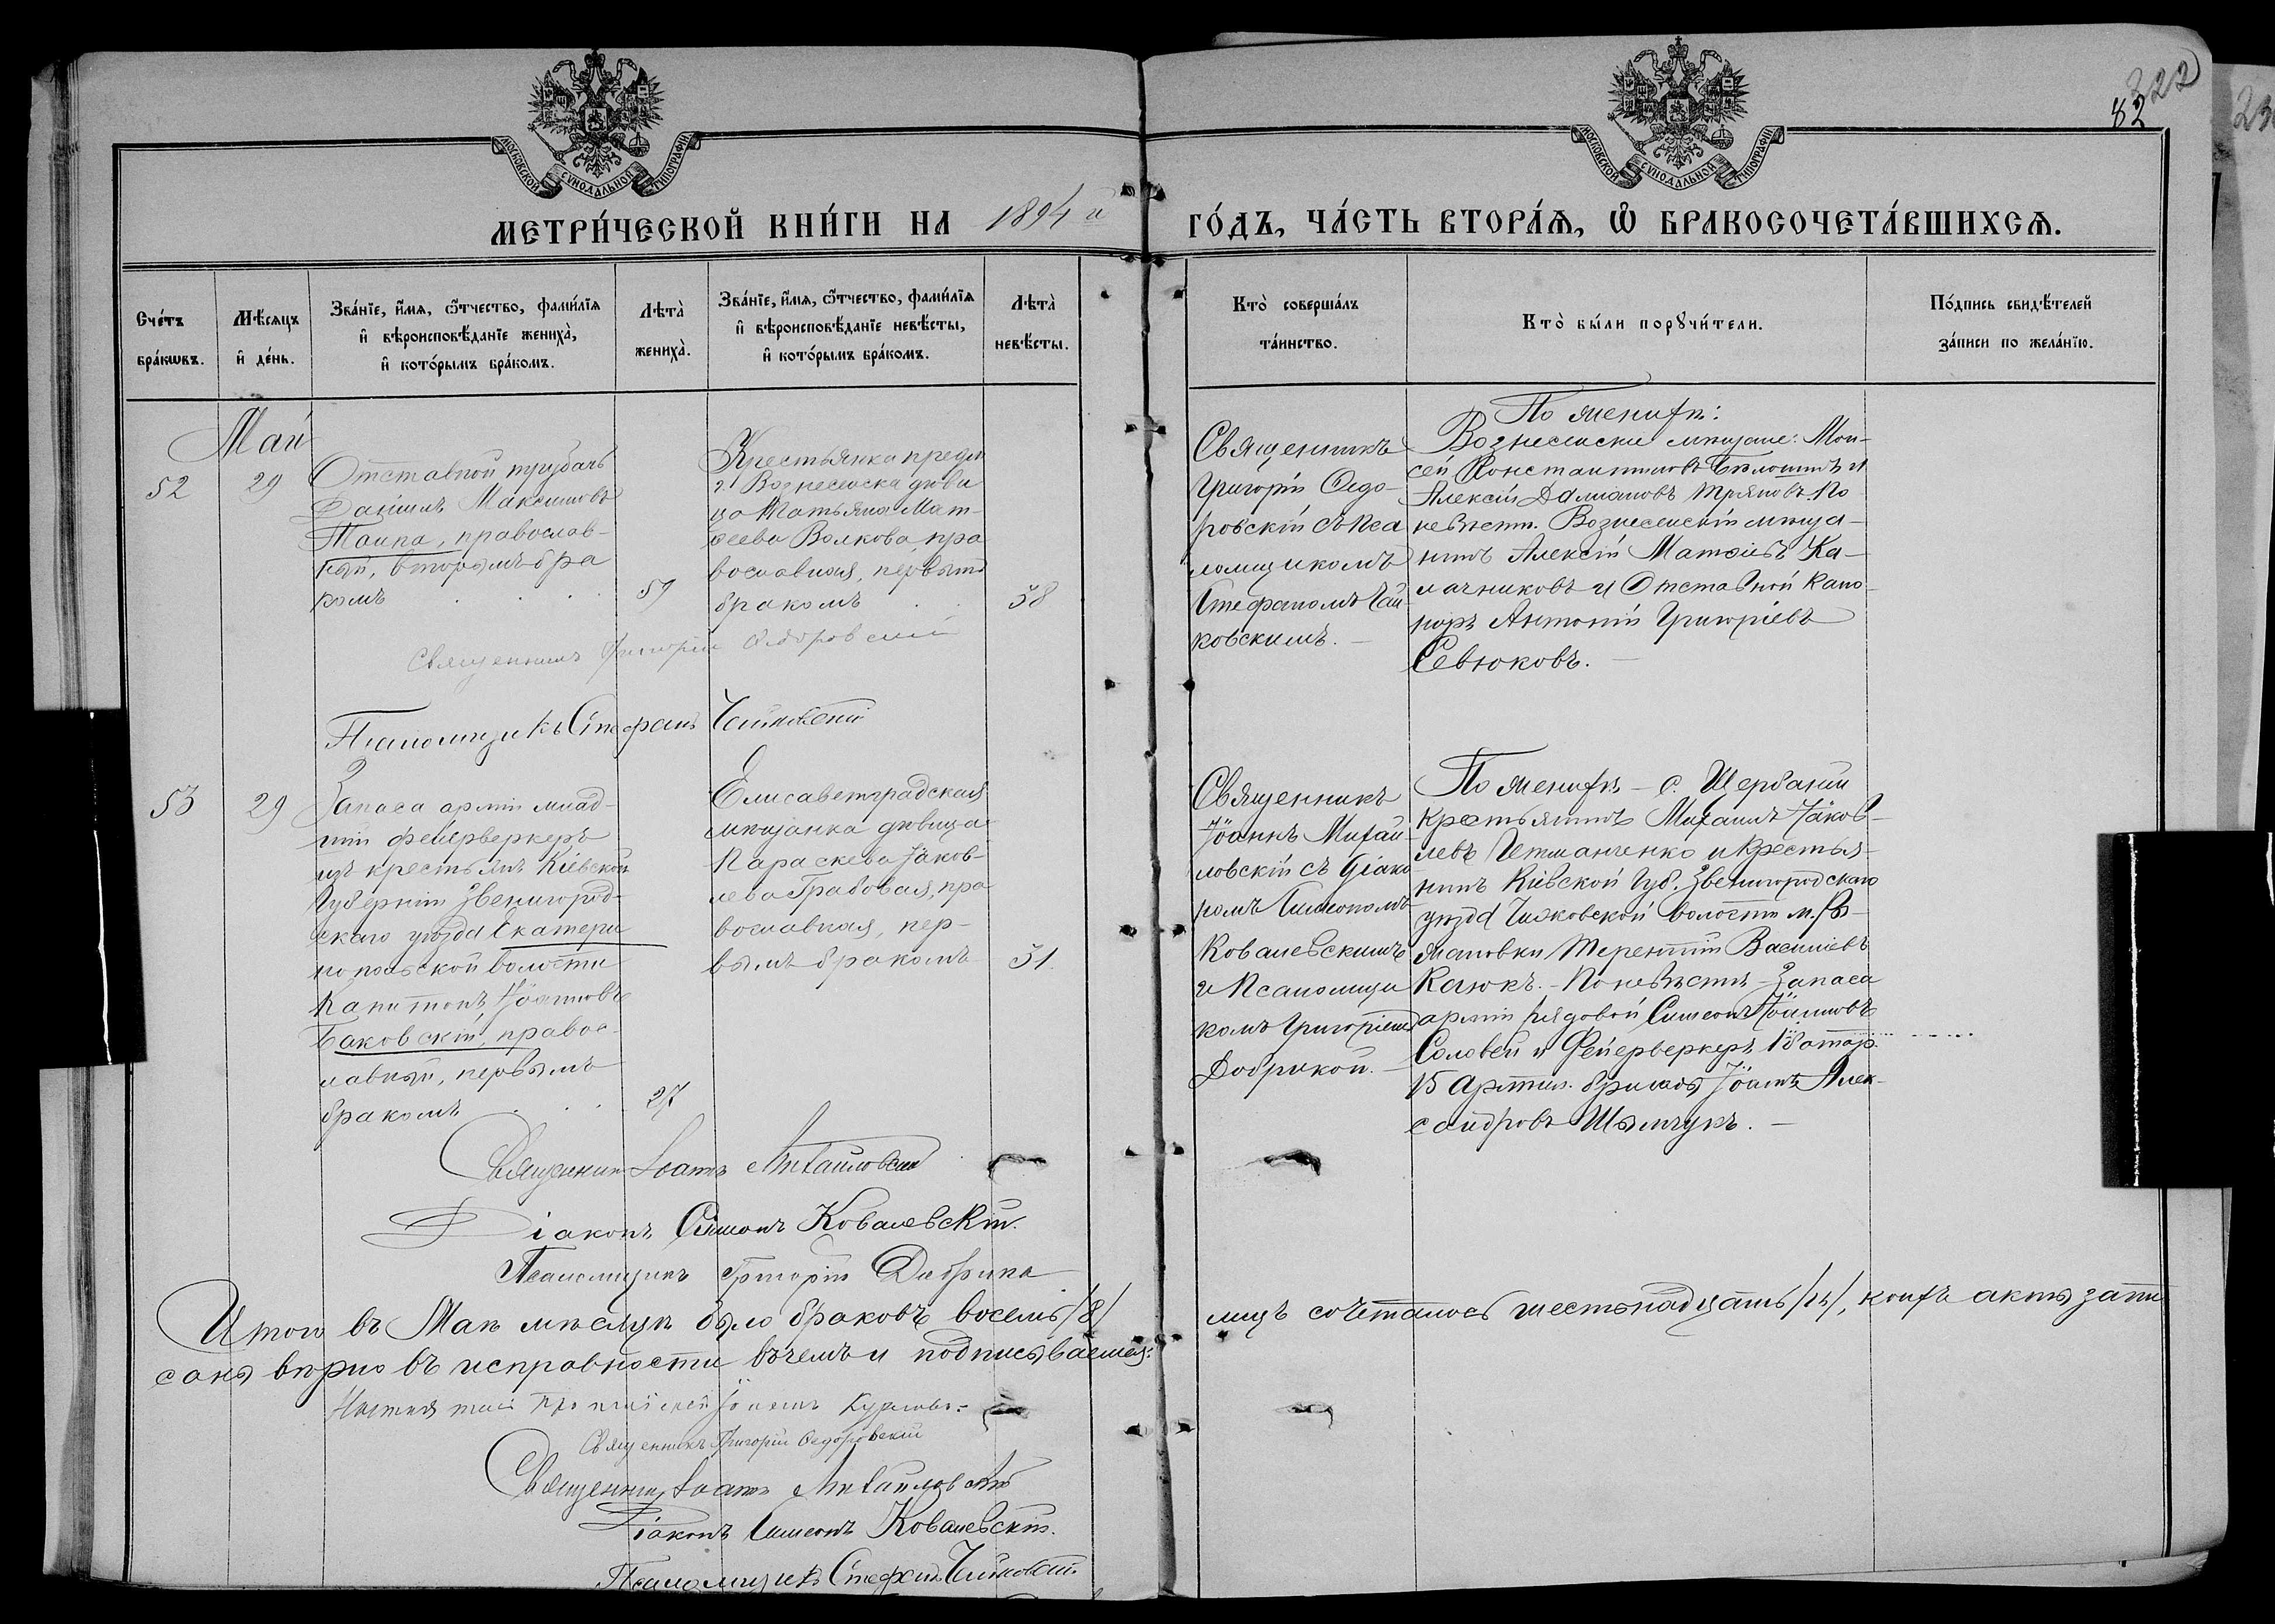 322
82
МОСКОВСКОЙ СУНОДАЛЬНОЙ ТИПОГРАФІИ
МОСКОВСКОЙ СУНОДАЛЬНОЙ ТИПОГРАФІИ
МЕТРИ́ЧЕСКОЙ КНИ́ГИ НА 1894 й
ГО́ДЪ, ЧА́СТЬ ВТОРА́Ѧ, Ѡ҆ БРАКОСОЧЕТА́ВШИХСѦ.
Сче́тъ
бра́кѡвъ.
Мѣ́сѧцъ
и҆ де́нь.
Зва́нїе, и҆́мѧ, ѻ҆́тчество, фами́лїѧ
и҆ вѣроисповѣ́данїе жениха̀,
и҆ кото́рымъ бра́комъ.
Лѣта̀
жениха̀.
Зва́нїе, и҆́мѧ, ѻ҆́тчество, фами́лїѧ
и҆ вѣроисповѣ́данїе невѣ́сты,
и҆ кото́рымъ бра́комъ.
Лѣта̀
невѣ́сты.
Кто̀ соверша́лъ
та́инство.
Кто̀ бы́ли порꙋчи́тели.
По́дпись свидѣ́телей
за́писи по жела́нїю.
Май
52
29
Отставной трубачъ
Даніилъ Максимовъ
Таипа, православ-
ный, вторымъ бра
комъ
59
Крестьянка предм
г. Вознесенска дѣви
ца Татьяна Мат-
ѳеева Волкова, пра
вославная, первымъ
бракомъ
38
Священникъ
Григорій Ѳедо-
ровскій съ Пса
ломщикомъ
Стефаномъ Чай
ковскимъ. –
По женихѣ:
Вознесенские мѣщане: Мои-
сей Константиновъ и
Алексій Даміановъ По
невѣстѣ. Вознесенскій мѣща-
нинъ Алексій Матѳіевъ Ка-
лачниковъ и Отставной Капо-
норъ Антоній Григоріевъ
Севюковъ. –
Священникъ Григорій Ѳедоровский
Псаломщикъ Стефанъ Чайковскій
53
29
Запаса арміи млад-
шій фейерверкеръ
изъ крестьянъ Кіевской
Губерніи Звенигород-
скаго уѣзда Екатери
нопольской волости
Капитонъ Іоанновъ
Баковскій, правос-
лавный, первымъ
бракомъ
27
Елисаветградская
мѣщанка дѣвица
Параскева Іаков-
лева Грабовая, пра
вославная, пер-
вымъ бракомъ
31.
Священникъ
Іоаннъ Михай-
ловскій съ Діако
номъ Симеономъ
Ковалевскимъ
и Псаломщи
комъ Григоріемъ
Добрикой. –
По женихѣ – с. Щербаній
крестьянинъ Михаилъ Іаков-
левъ Гетманченко и крестья-
нинъ Кіевской Губ. Звенигородскаго
уѣзда волости м.
Терентій Василіевъ
Каюкъ. – По невѣстѣ – Запаса
арміи рядовой Симеонъ Іоанновъ
Соловей и Фейерверкеръ 1 батар.
15 Артил. бригады Іоаннъ Алек-
сандровъ Шымчукъ. –
Священникъ Іоаннъ Михайловскій
Діаконъ Симеонъ Ковалевскій.
Псаломщикъ Григорій Добрика
Итого въ Маѣ мѣсяцѣ было браковъ восемь /8/
лицъ сочеталось шестьнадцать /16/, коихъ акты запи
саны вѣрно въ исправности въ чемъ и подписываемся:
Іоаннъ
Священникъ Григорій Ѳедоровскій
Священникъ Іоаннъ Михайловскій
Діаконъ Симеонъ Ковалевскій.
Псаломщикъ Стефанъ Чайковскій.